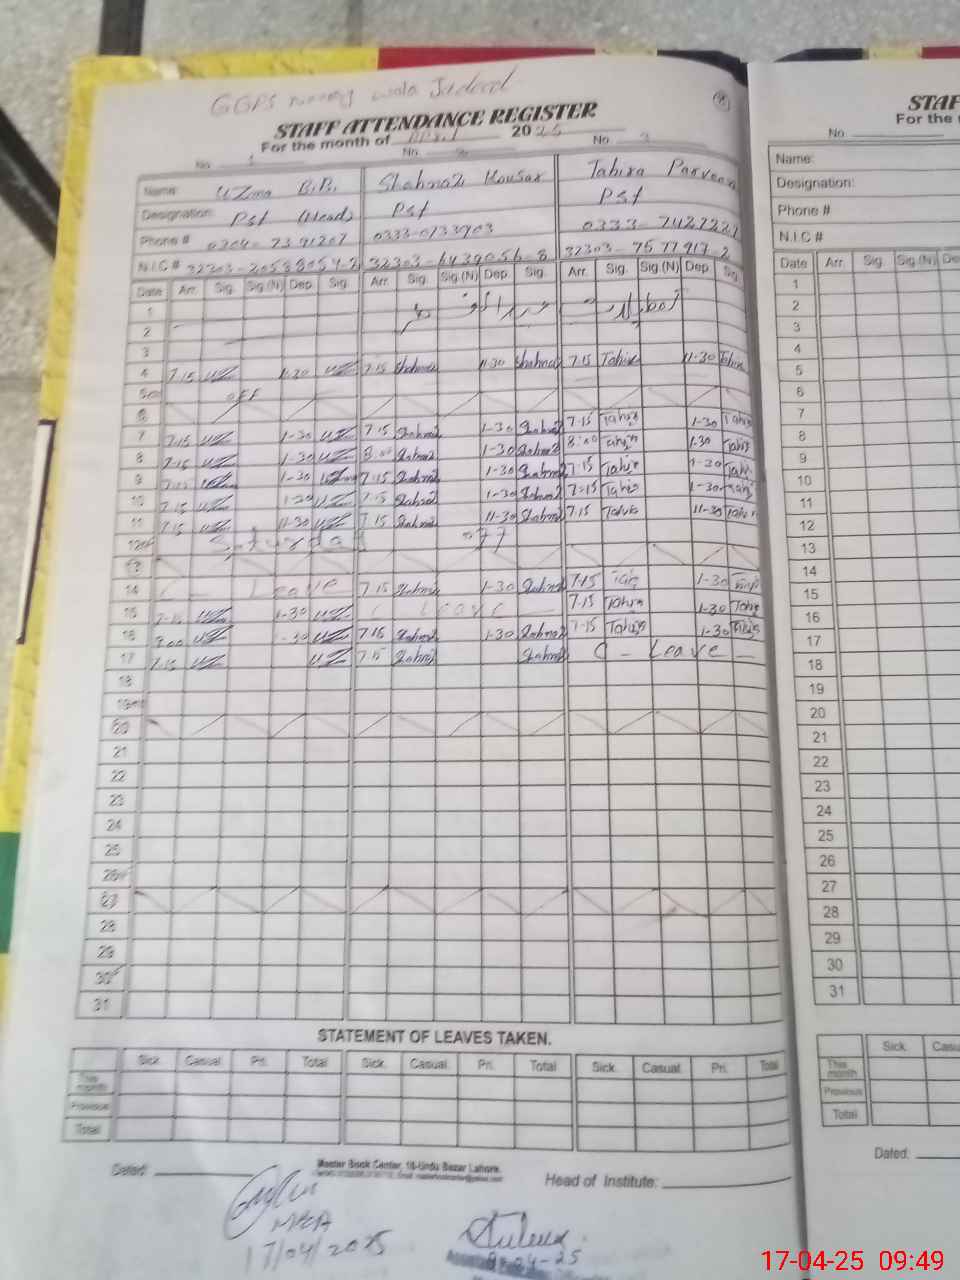 GGPS wala Jadeed
STAFF ATTENDANCE REGISTER
For the month of April 2025
No 1 No. 2 No. 3
Name: Uzma B.B. Shahnaz Kousar Tahira Parveen
Designation: Pst (Head) Pst Pst
Phone # 0304-7391207 0333-0733903 0333-7427227
N.I.C # 32303-2058805 32303-6439056-8 32303-7577917-2
Date Arr. Sig. Sig.(N) Dep. Sig. Arr. Sig. Sig.(N) Dep. Sig. Arr. Sig. Sig.(N) Dep. Sig.
1
2
3
4 7-15 UZ 11-30 UZ 7-15 Shahnaz 11-30 Shahnaz 7-15 Tahira 11-30 Tahira
5 off
6
7 7-15 UZ 1-30 UZ 7-15 Shahnaz 1-30 Shahnaz 7-15 Tahira 1-30 Tahira
8 7-15 UZ 1-30 UZ 8:00 Shahnaz 1-30 Shahnaz 8:00 Tahira 1-30 Tahira
9 7-15 1-30 7-15 Shahnaz 1-30 Shahnaz 7-15 Tahira 1-30 Tahira
10 7-15 UZ 1-30 UZ 7-15 Shahnaz 1-30 Shahnaz 7-15 Tahira 1-30 Tahira
11 7-15 UZ 11-30 UZ 7-15 Shahnaz 11-30 Shahnaz 7-15 Tahira 11-30 Tahira
12 Saturday off
13
14 C - Leave 7-15 Shahnaz 1-30 Shahnaz 7-15 Tahira 1-30 Tahira
15 7-15 UZ 1-30 UZ C Leave 7-15 Tahira 1-30 Tahira
16 8:00 UZ 1-30 UZ 7-15 Shahnaz 1-30 Shahnaz 7-15 Tahira 1-30 Tahira
17 7-15 UZ UZ 7-15 Shahnaz Shahnaz C - Leave -
18
19
20
21
22
23
24
25
26
27
28
29
30
31
STATEMENT OF LEAVES TAKEN.
Sick. Casual. Pri. Total Sick. Casual. Pri. Total Sick. Casual. Pri. Total
This month
Previous
Total
Dated: Master Book Center, 16-Urdu Bazar Lahore. Head of Institute:
MEA
17/04/2025
04-25
STAF
For the
No
Name:
Designation:
Phone #
N.I.C #
Date Arr. Sig. Sig.(N) De
1
2
3
4
5
6
7
8
9
10
11
12
13
14
15
16
17
18
19
20
21
22
23
24
25
26
27
28
29
30
31
Sick. Casu
This month
Previous
Total
Dated.
17-04-25 09:49